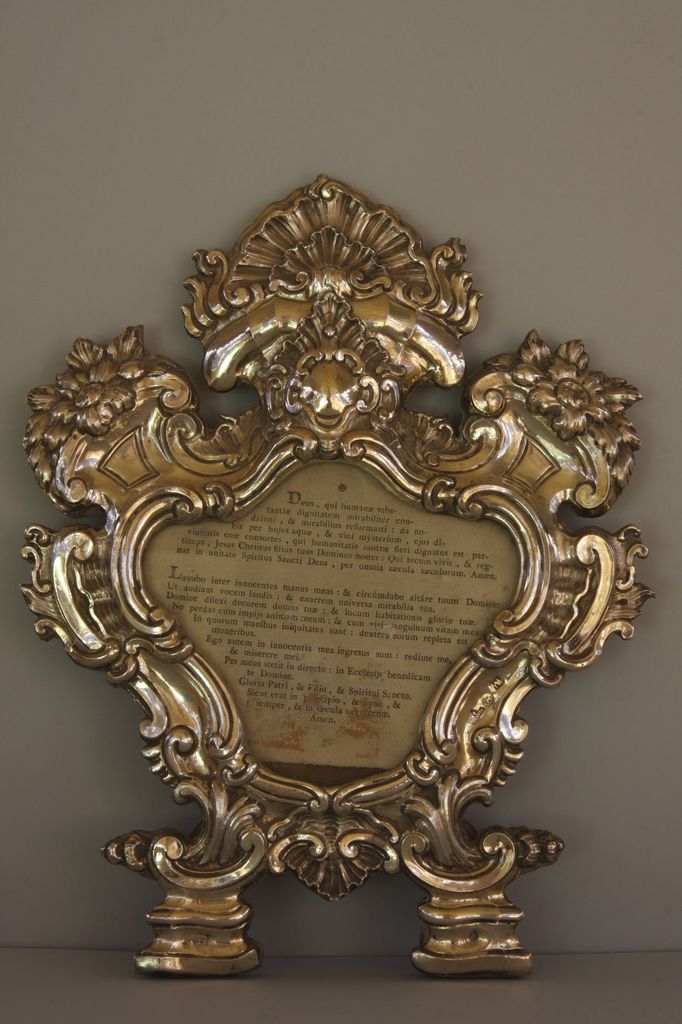 ✠
Deus, qui humanæ subs-
tantiæ dignitatem mirabilitèr con-
didisti, & mirabilius reformasti: da no-
bis per hujus aquæ, & vini mysterium, ejus di-
vinitatis esse consortes, qui humanitatis nostræ fieri dignatus est par-
ticeps, Jesus Christus filius tuus Dominus noster: Qui tecum vivit, & reg-
nat in unitate Spiritus Sancti Deus, per omnia sæcula sæculorum. Amen.
Lavabo inter innocentes manus meas: & circúmdabo altáre tuum Domine
Ut audiam vocem laudis: & enarrem universa mirabilia tua.
Domine dilexi decorem domus tuæ: & locum habitationis gloriæ tuæ.
Ne perdas cum impijs animam meam: & cum viris sanguinum vitam meam
In quorum manibus iniquitates sunt: dextera eorum repleta est
muneribus.
Ego autem in innocentia mea ingresus sum: redime me,
& miserere mei.
Pes meus stetit in directo: in Ecclesijs benedicam
te Domine.
Gloria Patri, & Filio, & Spiritui Sancto.
Sicut erat in principio, & nunc, &
semper, & in sæcula sæculorum.
Amen.